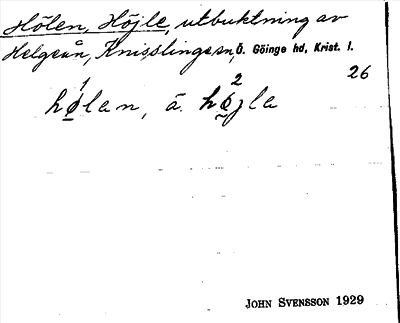 Hölen, Höjle, utbuktning av
Helgeån, Knisslinge sn, Ö. Göinge hd, Krist. l.
26
hø̱¹lan, ä. hø̱²jla
JOHN SVENSSON 1929